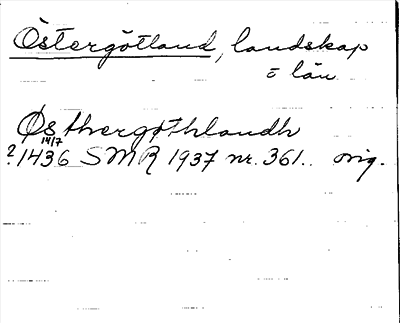 Östergötland, landskap
o län
Østhergøthlandh
14/7
? 1436 SMR 1937 nr. 361.. orig.